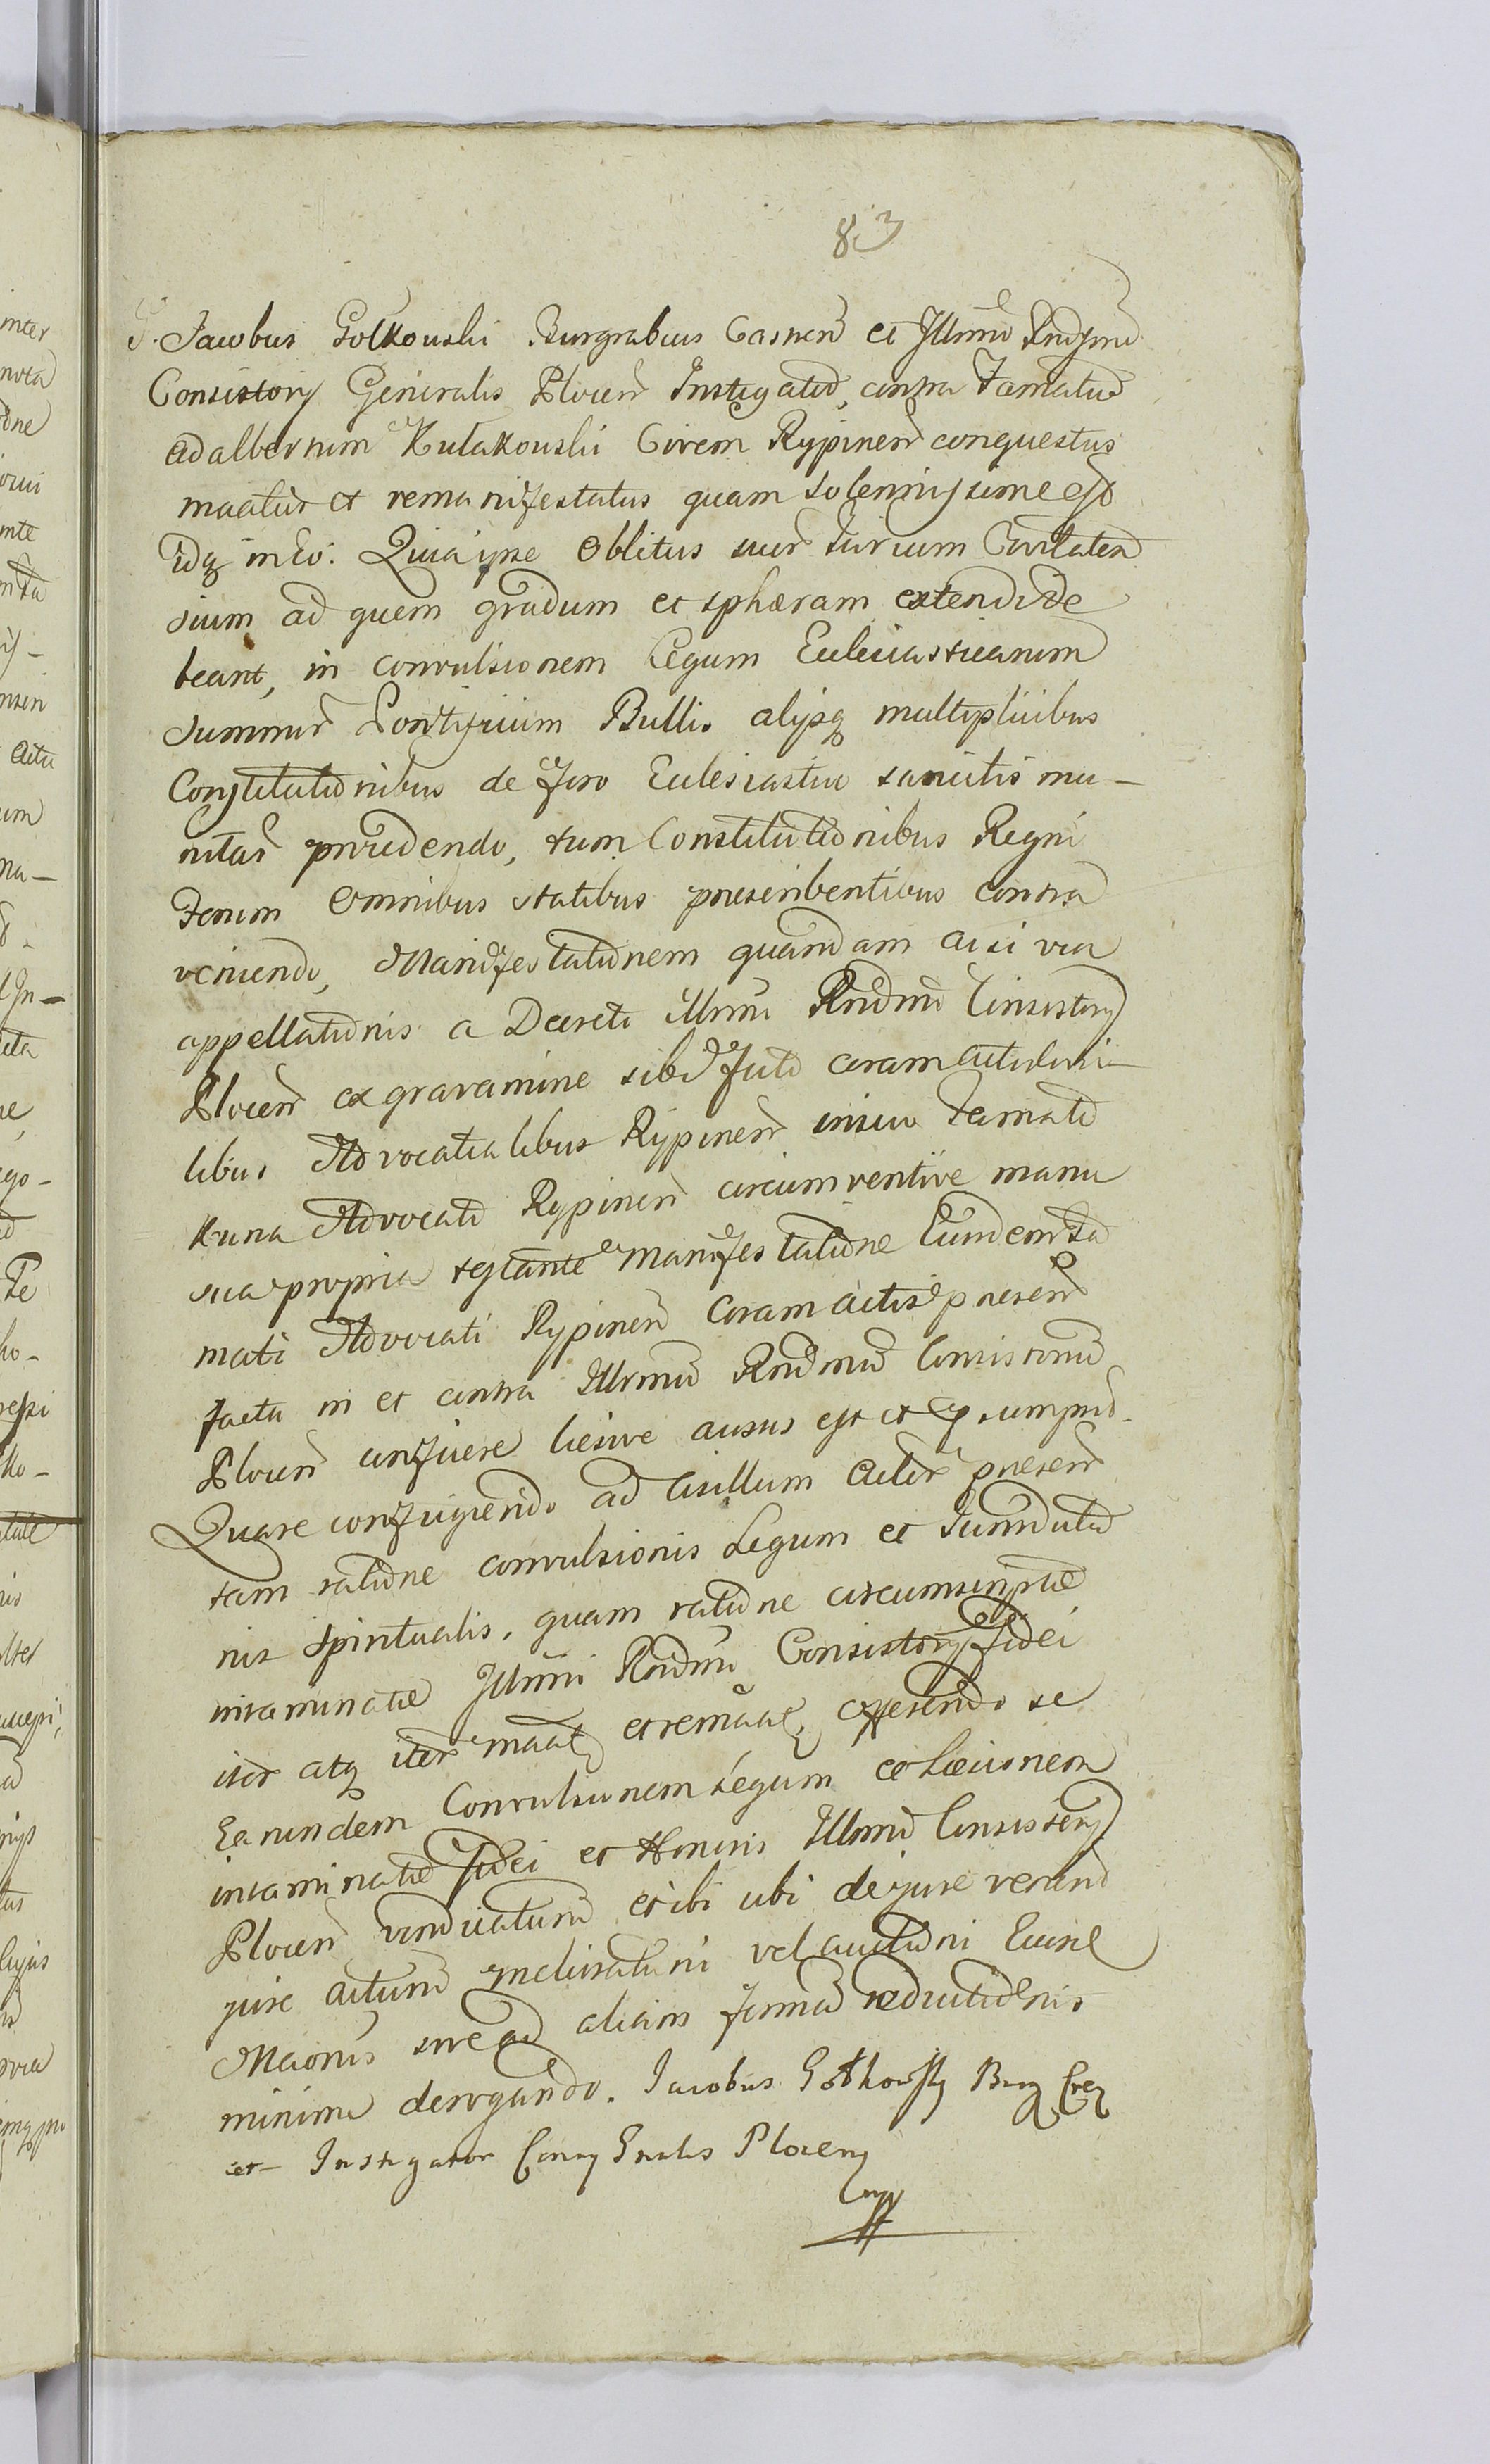 83
G. Jacobus Golkouski Burgrabius Casnen et Illmi Rndssmi
Consistory Generalis Plocen Instigator, contra Famatum
Adalbertum Kulakouski Civem Rypinen conquestus
maatur et remanifestatus quam solennissime est
idq in Eo. Quia ipse Oblitus suor Jurium Civilaten
sium ad quem gradum et sphæram extendi de
beant, in convulsionem Legum Ecclesiasticarum
Summor Pontificum Bullis alijsq multiplicibus
Constitutionibus de foro Ecclesiastico sancitis mu-
nitar procedendo, tum Constitutionibus Regni
Forum Omnibus statibus prescribentibus contra
veniendo, Manifestationem quandam ac si via
appellationis a Decreto Illmi Rndmi Consistory
Plocen ex gravamine sibi facto coram Actis
libus Advocatialibus Rypinen inscio Famato
Kuna Advocato Rypinen circumventive manu
sua propria testante manifestatione Eiusdem Fa
mati Advocati Rypinen Coram Actis presen
facta in et contra Illmum Rndmum Consistorium
Plocen conficere læsive ausus est et
Quare confugiendo ad Asillum Actor presen
tam ratione convulsionis Legum et Jurisdictio
nis Spiritualis, quam ratione circumscriptæ
intaminatæ Illmi Rndmi Consistory fidei
iter atq iter maat et remaat, offerendo se
Earundem Convulsionem Legum et Læsionem
intaminatæ fidei et Honoris Illmi Consistory
Plocen vindicaturum et ibi ubi de jure venerit
jure acturum meliorationi vel auctioni Eiusd
Maonis sive ad aliam formam reductionis
minime derogando. Jacobus Gołkowsky Burg
et Instigator Consy Gnalis Plocen